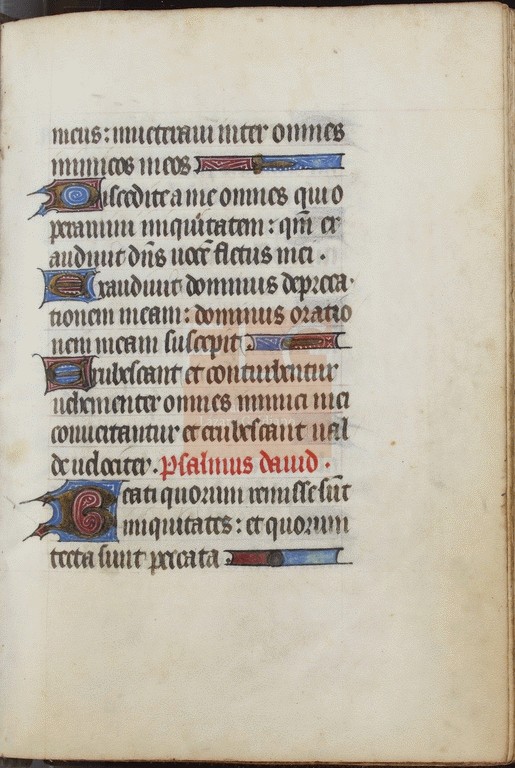 meus: inueteraui inter omnes
inimicos meos
Discedite a me omnes qui o
peramini iniquitatem: qm̄ ex
audiuit dn̄s uocē fletus mei.
Exaudiuit dominus depreca-
tionem meam: dominus oratio
nem meam suscepit.
Erubescant et conturbentur
uehementer omnes inimici mei
conuertantur et erubescant ual
de uelociter. Psalmus dauid.
Beati quorum remisse sūt
iniquitates: et quorum
tecta sunt peccata